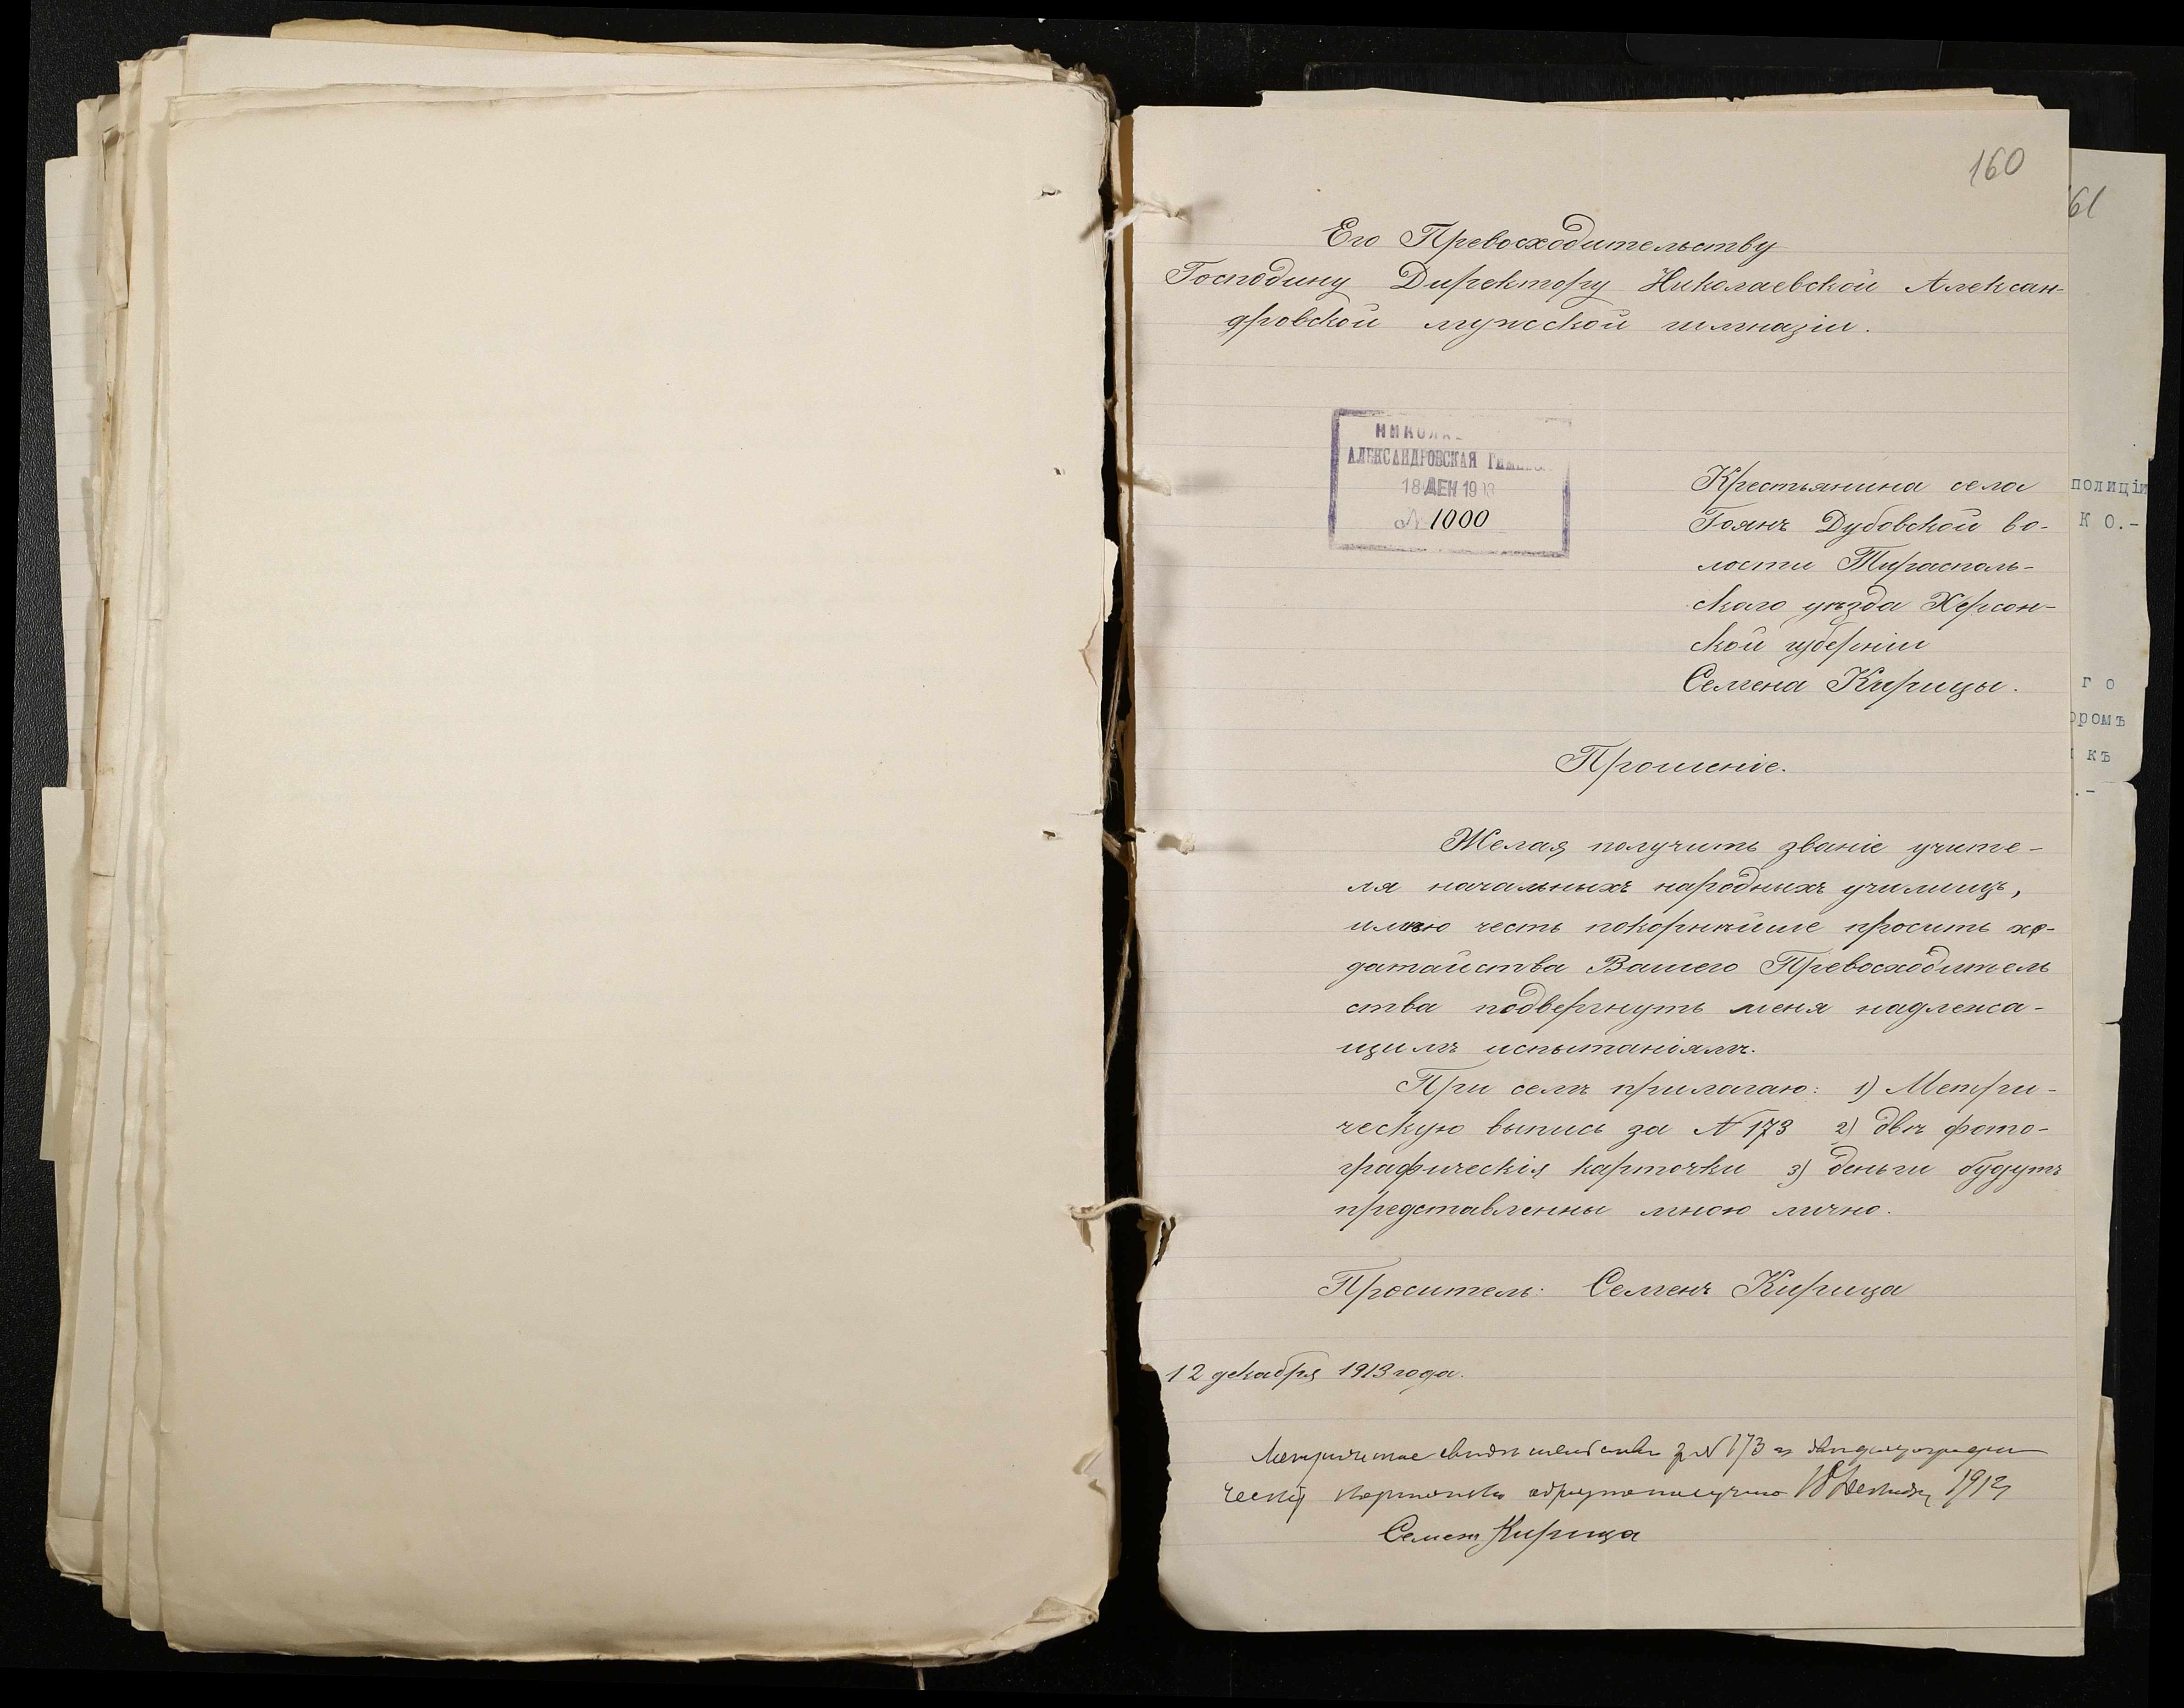 160
61
Его Превосходительству
Господину Директору Николаевской Алексан-
дровской мужской гимназіи.
АЛЕКСАНДРОВСКАЯ
18 ДЕК 1913
№ 1000
Крестьянина села
Гоянъ Дубовской во-
лости Тирасполь-
скаго уѣзда Херсон-
ской губерніи
Семена Кирицы.
полиціи
К О.-
г о
ромъ
къ
.-
Прошеніе.
Желая получить званіе учите-
ля начальныхъ народныхъ училищъ,
имѣю честь покорнѣйше просить хо-
датайства Вашего Превосходитель
ства подвергнуть меня надлежа-
щимъ испытаніямъ.
При семъ прилагаю: 1) Метри-
ческую выпись за № 173 2) двѣ фото-
графическія карточки 3) деньги будутъ
представленны мною лично.
Проситель: Семенъ Кирица
12 декабря 1913 года.
за № 173 и
ческія карточки обратно получилъ
Семенъ Кирица